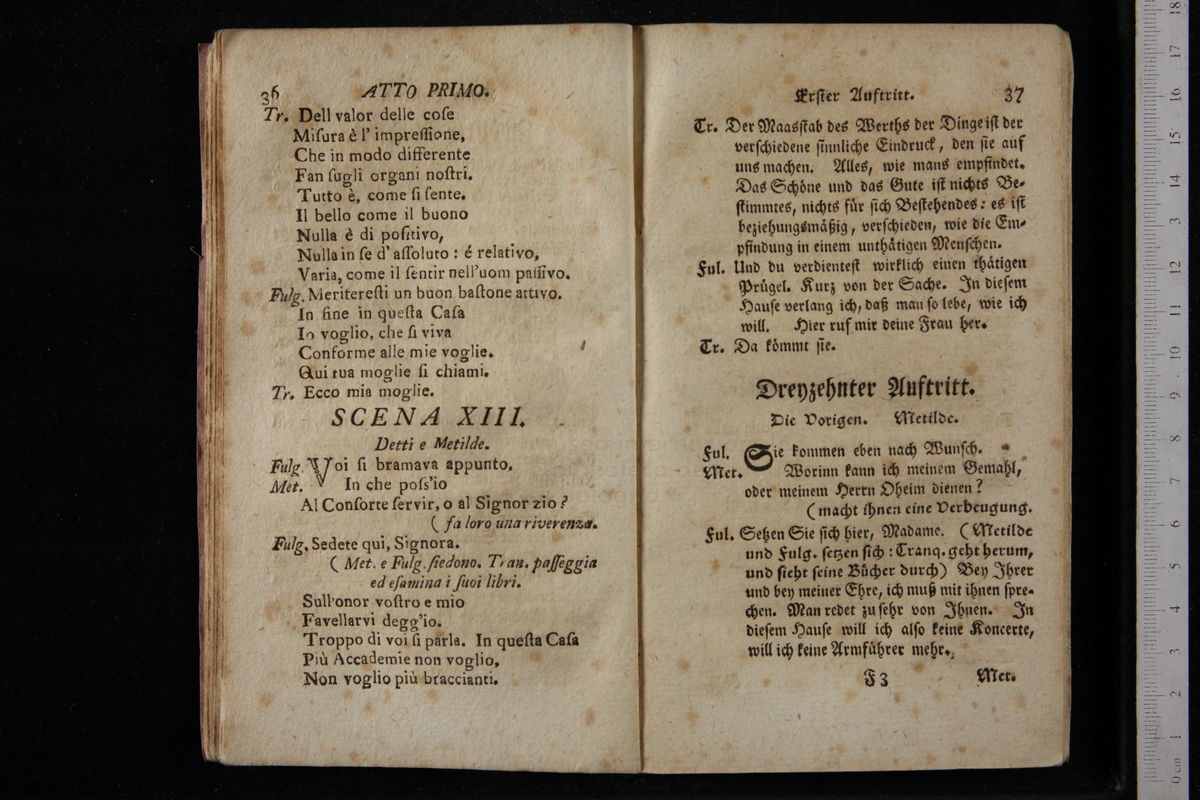 36 ATTO PRIMO.
Tr. Dell valor delle coſe
Miſura è l' impreſſione,
Che in modo differente
Fan ſugli organi noſtri.
Tutto è, come ſi ſente.
Il bello come il buono
Nulla è di poſitivo,
Nulla in ſe d' aſſoluto : é relativo,
Varia, come il ſentir nell'uom paſſivo.
Fulg. Meritereſti un buon baſtone attivo.
In fine in queſta Caſa
Io voglio, che ſi viva
Conforme alle mie voglie.
Qui tua moglie ſi chiami.
Tr. Ecco mia moglie.
SCENA XIII.
Detti e Metilde.
Fulg. Voi ſi bramava appunto.
Met. In che poſs'io
Al Conſorte ſervir, o al Signor zio ?
( fa loro una riverenza.
Fulg. Sedete qui, Signora.
( Met. e Fulg. ſiedono. Tran. paſſeggia
ed eſamina i ſuoi libri.
Sull'onor voſtro e mio
Favellarvi degg'io.
Troppo di voi ſi parla. In queſta Caſa
Più Accademie non voglio,
Non voglio più braccianti.
Erſter Auftritt. 37
Tr. Der Maasſtab des Werths der Dinge iſt der
verſchiedene ſinnliche Eindruck, den ſie auf
uns machen. Alles, wie mans empfindet.
Das Schöne und das Gute iſt nichts Be-
ſtimmtes, nichts für ſich Beſtehendes : es iſt
beziehungsmäßig, verſchieden, wie die Em-
pfindung in einem unthätigen Menſchen.
Ful. Und du verdienteſt wirklich einen thätigen
Prügel. Kurz von der Sache. In dieſem
Hauſe verlang ich, daß man ſo lebe, wie ich
will. Hier ruf mir deine Frau her.
Tr. Da kömmt ſie.
Dreyzehnter Auftritt.
Die Vorigen. Metilde.
Ful. Sie kommen eben nach Wunſch.
Met. Worinn kann ich meinem Gemahl,
oder meinem Herrn Oheim dienen ?
( macht ihnen eine Verbeugung.
Ful. Setzen Sie ſich hier, Madame. ( Metilde
und Fulg. ſetzen ſich : Tranq. geht herum,
und ſieht ſeine Bücher durch) Bey Ihrer
und bey meiner Ehre, ich muß mit ihnen ſpre-
chen. Man redet zu ſehr von Ihnen. In
dieſem Hauſe will ich alſo keine Koncerte,
will ich keine Armführer mehr.
F 3 Met.
0 cm 1 2 3 4 5 6 7 8 9 10 11 12 13 14 15 16 17 18